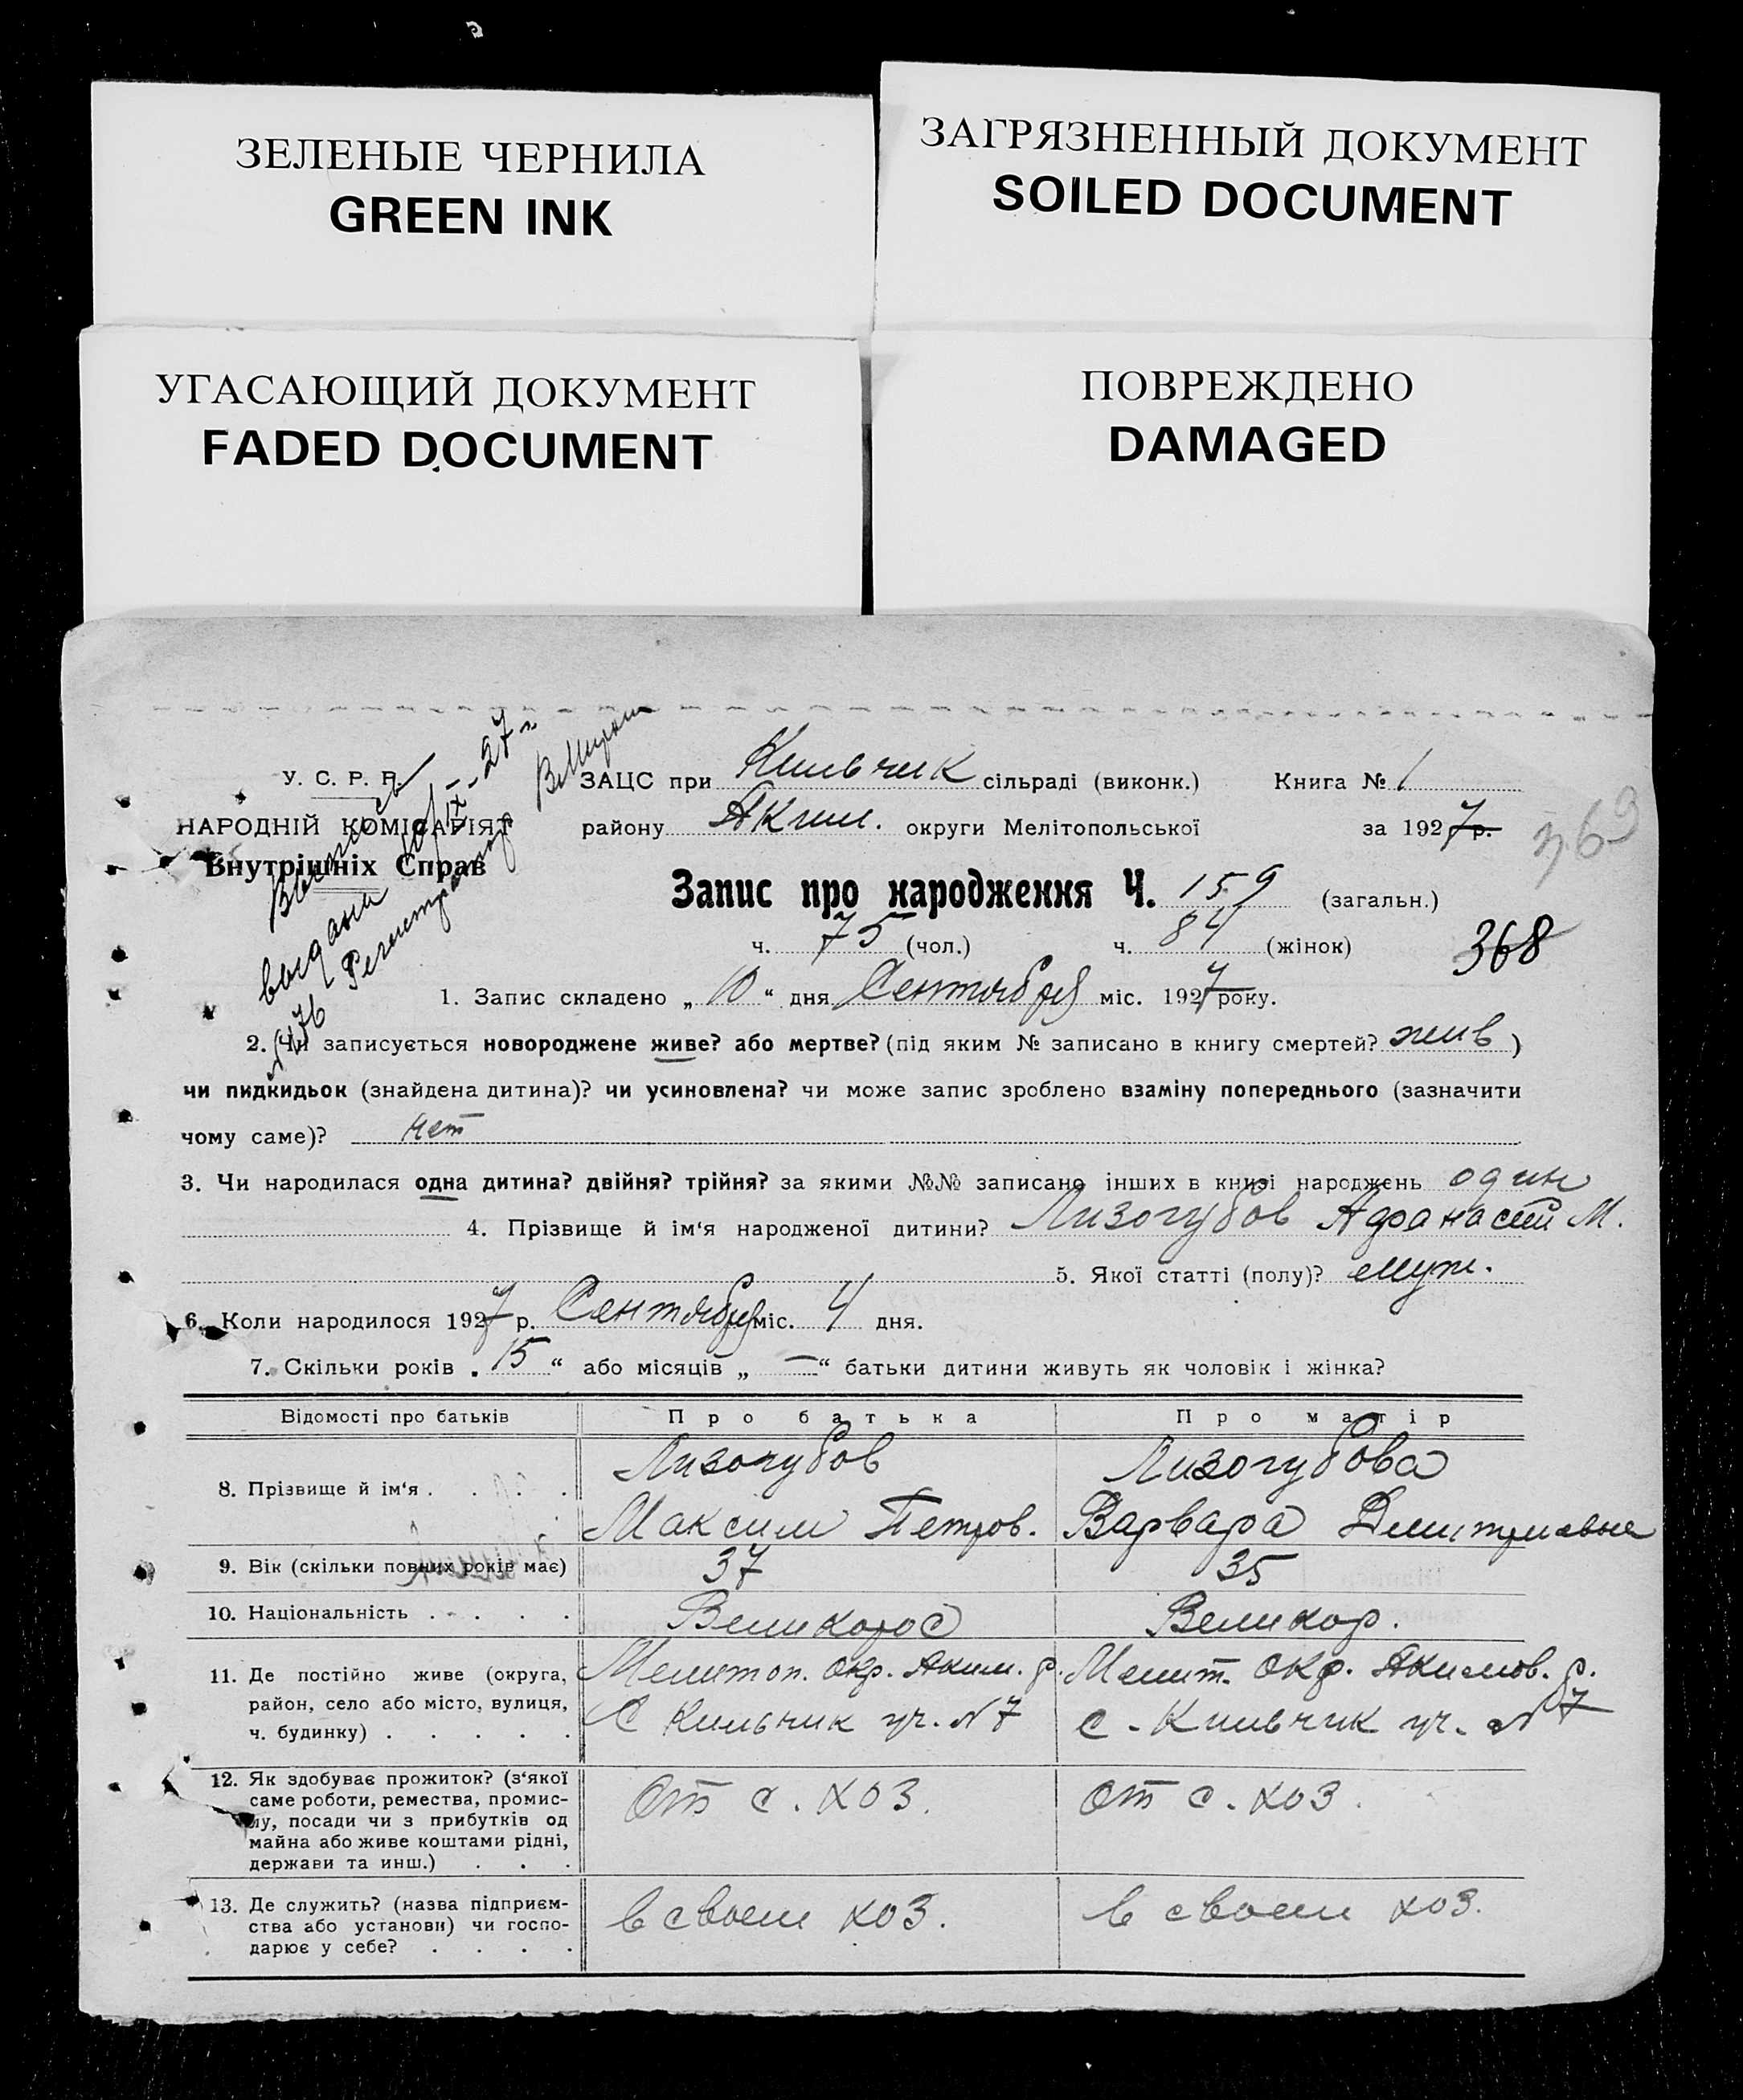 ЗЕЛЕНЫЕ ЧЕРНИЛА
GREEN INK
ЗАГРЯЗНЕННЫЙ ДОКУМЕНТ
SOILED DOCUMENT
УГАСАЮЩИЙ ДОКУМЕНТ
FADED DOCUMENT
ПОВРЕЖДЕНО
DAMAGED
У. С. Р. Р.
НАРОДНІЙ КОМІСАРІЯТ
Внутрішніх Справ
выдана 10/IX-27 г.
ЗАЦС при Кильчик сільраді (виконк.) Книга № 1
району Аким. округи Мелітопольської за 1927 р.
369
Запис про народження Ч. 159 (загальн.)
ч. 75 (чол.) ч. 84 (жінок)
368
1. Запис складено „ 10 “ дня Сентября міс. 1927 року.
2. Чи записується новороджене живе? або мертве? (під яким № записано в книгу смертей? жив )
чи пидкидьок (знайдена дитина)? чи усиновлена? чи може запис зроблено взаміну попереднього (зазначити
чому саме)? нет
3. Чи народилася одна дитина? двійня? трійня? за якими №№ записано інших в книзі народжень один
4. Прізвище й ім'я народженої дитини? Лизогубов Афанасий М.
5. Якої статті (полу)? муж.
6. Коли народилося 1927 р. Сентября міс. 4 дня.
7. Скільки років „ 15 “ або місяців „ — “ батьки дитини живуть як чоловік і жінка?
Відомості про батьків Про батька Про матір
8. Прізвище й ім'я . . . . Лизогубов Лизогубова
Максим Петров. Варвара Дмитриевна
9. Вік (скільки повних років має) 37 35
10. Національність . . . . Великорос Великор.
11. Де постійно живе (округа, Мелитоп. окр. Аким. р. Мелит. окр. Акимов. р.
район, село або місто, вулиця, С Кильчик уч. № 7 с. Кильчик уч. № 7
ч. будинку) . . . . .
12. Як здобуває прожиток? (з'якої
саме роботи, ремества, промис- От с. хоз. От с. хоз.
лу, посади чи з прибутків од
майна або живе коштами рідні,
держави та инш.) . . .
13. Де служить? (назва підприєм-
ства або установи) чи госпо- в своем хоз. в своем хоз.
дарює у себе? . . . .